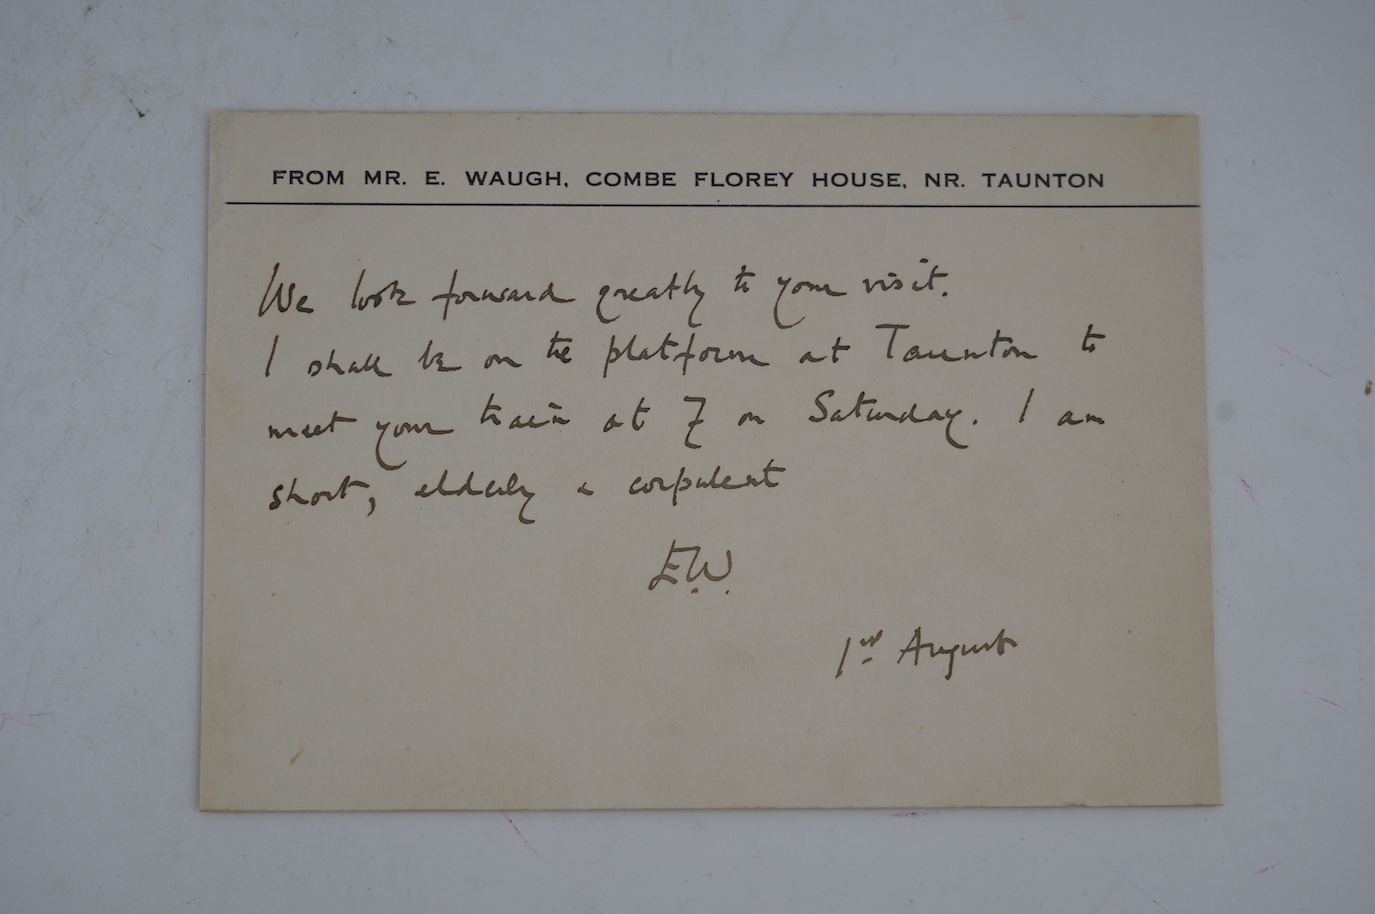 FROM MR. E. WAUGH, COMBE FLOREY HOUSE, NR. TAUNTON
We look forward greatly to your visit.
I shall be on the platform at Taunton to
meet your train at 7 on Saturday. I am
short, elderly & corpulent
E.W.
1st August